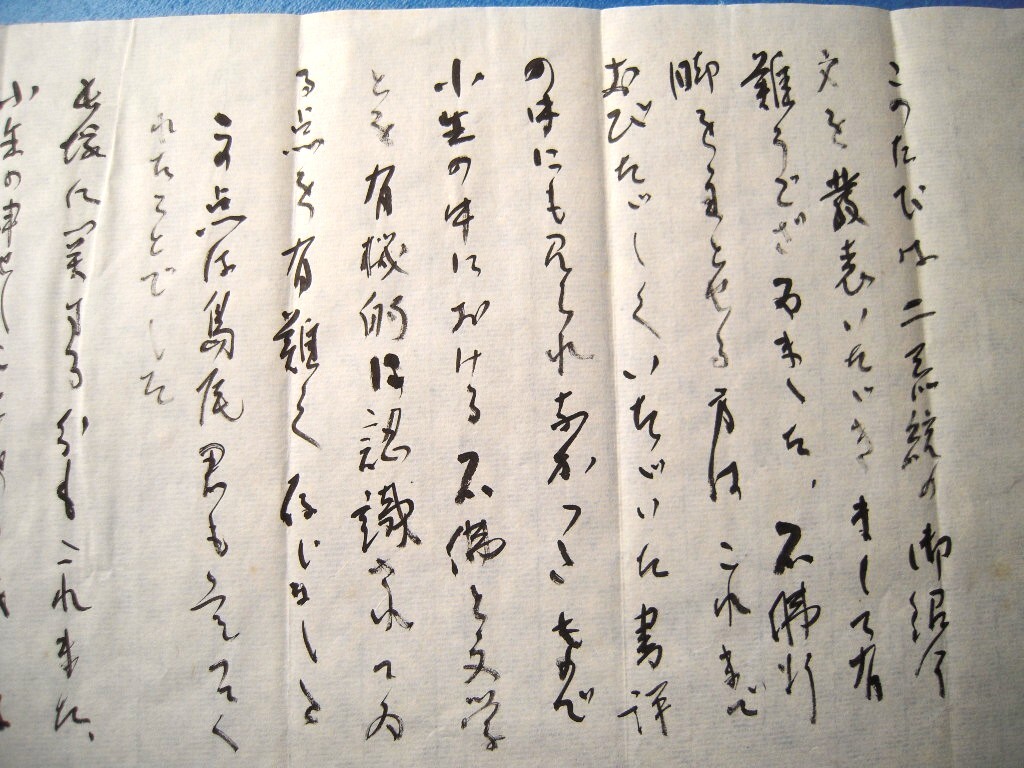 このたびは二 の御紹介
文を發表いたゞきまして有
難うございました、石佛行
脚をまとめる方はこれまで
おびたゞしくいたゞいた書評
の中にも見られなかつた
小生の中における石佛と文学
とを有機的に認識されてゐ
る点を有難く存じました
この点は島尾君も云つてく
れたことでした
長塚に関する分もこれまた、
小生の申せし